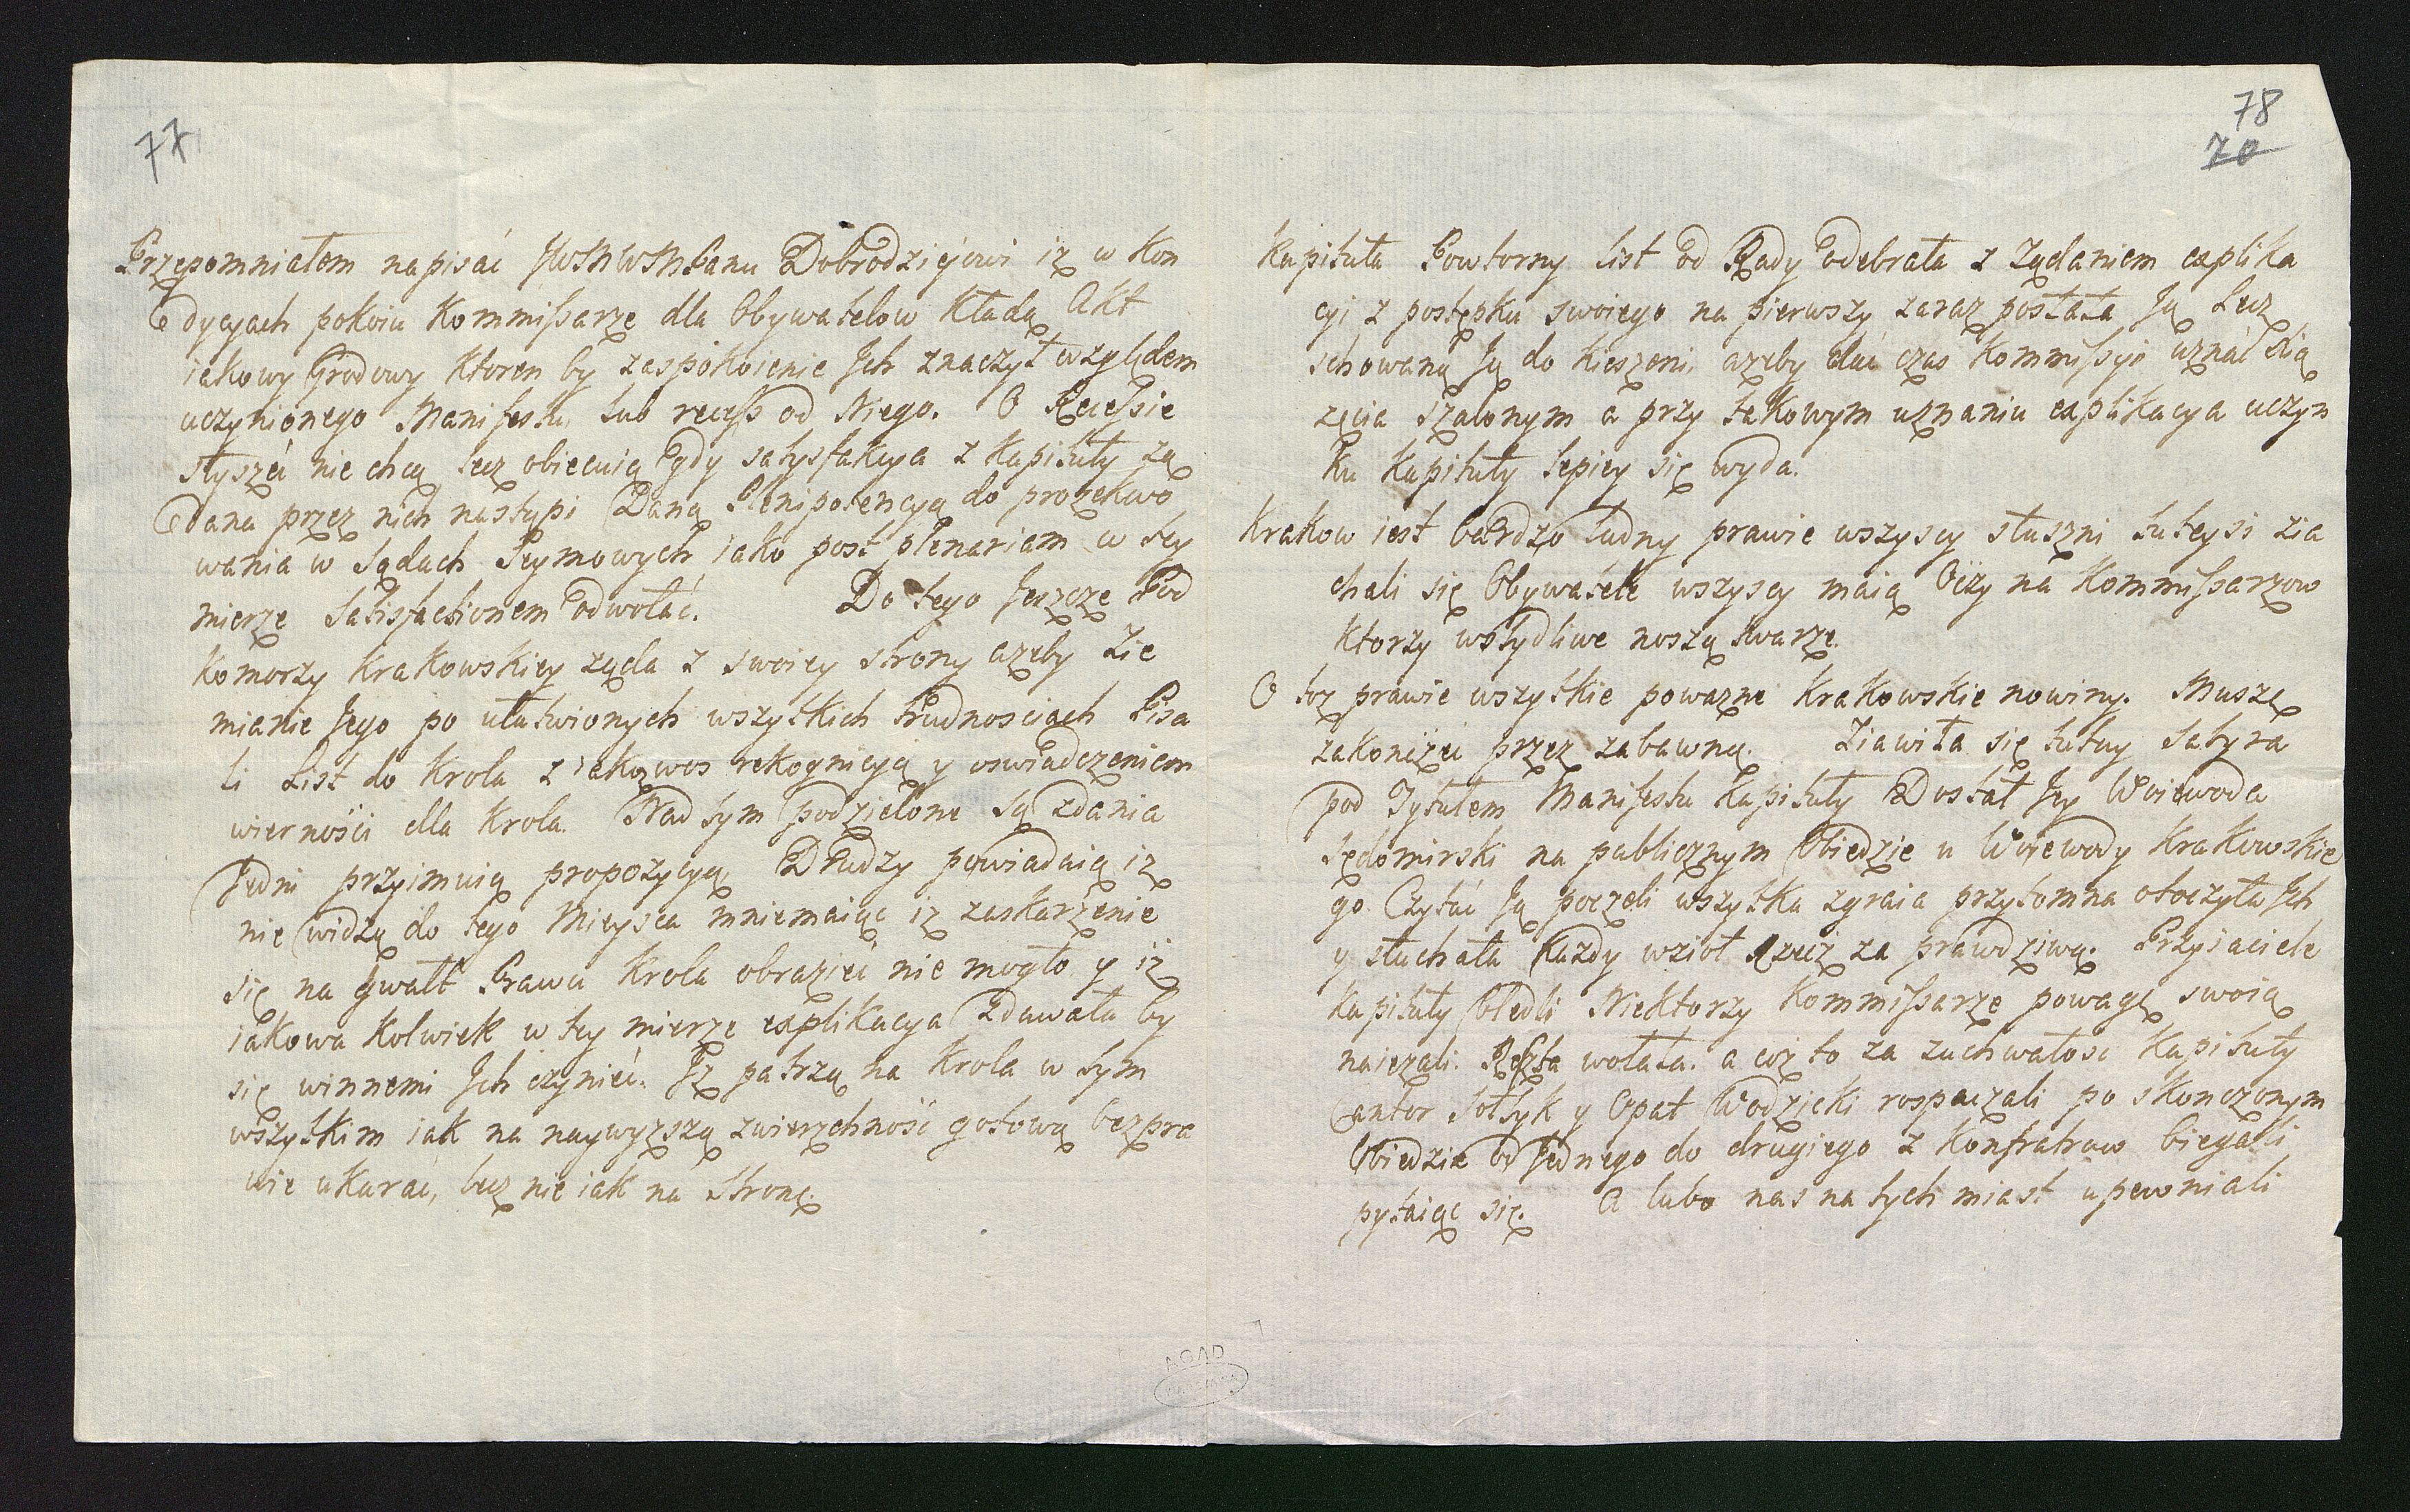 77
Przepomniałem napisać JWMWMPanu Dobrodzieiowi iż w kon
dycyach pokoiu Kommissarze dla Obywatelow Kładą Akt
iakowy Grodowy Ktoren by zaspokoienie Jch znaczył względem
uczynionego Manifestu, lub recess od Niego. O Recessie
słyszeć nie chcą lecz obiecuią gdy satysfakcya z Kapituły żą
dana przez nich nastąpi Daną Plenipotencyą do prozekwo
wania w Sądach Seymowych iako post plenariam w tey
mierze Satisfactionem odwołać. Do tego Jeszcze Pod
Komorzy Krakowskiey żąda z swoiey strony azeby Zie
mianie Jego po ułatwionych wszytkich trudnosciach Pisa
li List do Krola z rekognicyą y oswiadczeniem
wierności dla Krola. Nad tym podzielone są zdania
Jedni przyimuią propozycyą, Drudzy powiadaią iż
nie widzą do tego Mieysca mniemaiąc iz zaskarżenie
się na gwałt Prawa Krola obrazić nie mogło y iż
iakowa kolwiek w tey mierze explikacya zdawała by
się winnemi Jch czynić. Jż patrzą na Krola w tym
wszytkim iak na naywyzszą zwierzchność gotową bezpra
wie ukarać, lecz nie iak na Stronę.
78
70
Kapituła Powtorny List od Rady odebrała z żądaniem explika
cyi z postępku swoiego na pierwszy zaraz posłała Ją Lecz
schowaną Ją do kieszeni, azeby dać czas Kommissyi uznać Xią
zęcia szalonym a przy takowym uznaniu explikacya uczyn
ku Kapituły lepiey się wyda.
Krakow iest bardzo ludny prawie wszyscy słuszni tuteysi zia
chali się Obywatele wszyscy maią Oczy na Kommissarzow
Ktorzy wstydliwe noszą twarze.
O toz prawie wszytkie powazne Krakowskie nowiny. Muszę
zakończyć przez zabawną. Ziawiła się tutay Satyra
pod Tytułem Manifestu Kapituły Dostał Jey Woiewoda
Sędomirski na publicznym Obiedzie u Woiewody Krakowskie
go. Czytać Ją poczęli wszytka zgraia przytomna otoczyła Jch
y słuchała Każdy wzioł rzecz za prawdziwą. Przyiaciele
Kapituły bledli Niektorzy Kommissarze powagę swoią
naiezali. Reszta wołała. a coż to za zuchwałosc Kapituły
Cantor Sołtyk y Opat Wodzicki rospaczali po skonczonym
Obiedzie od Jednego do drugiego z Konfratrow biegali
pytaiąc się. A lubo nas natych miast upewniali
AGAD